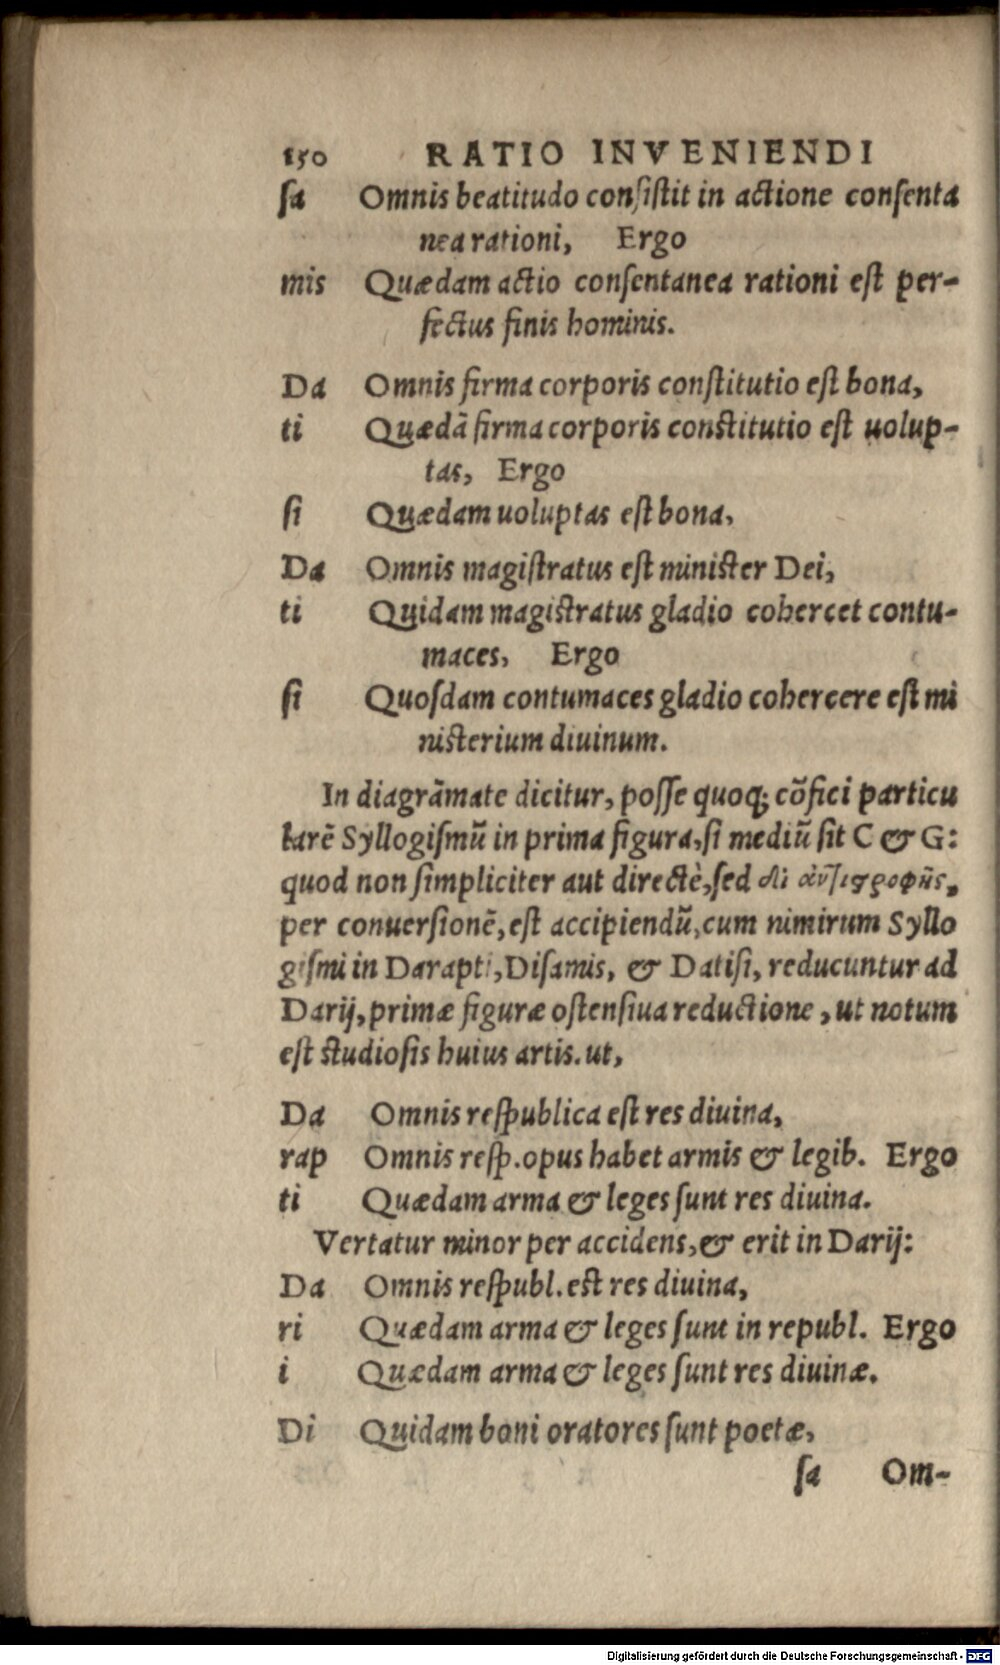 150 RATIO INVENIENDI
sa Omnis beatitudo consistit in actione consenta
nea rationi, Ergo
mis Quædam actio consentanea rationi est per-
fectus finis hominis.
Da Omnis firma corporis constitutio est bona,
ti Quædã firma corporis constitutio est uolup-
tas, Ergo
si Quædam uoluptas est bona.
Da Omnis magistratus est minister Dei,
ti Quidam magistratus gladio cohercet contu-
maces, Ergo
si Quosdam contumaces gladio cohercere est mi
nisterium diuinum.
In diagrãmate dicitur, posse quoq; cõfici particu
larẽ Syllogismũ in prima figura, si mediũ sit C & G:
quod non simpliciter aut directè, sed δι' ἀντιστροφῆς,
per conuersionẽ, est accipiendũ, cum nimirum Syllo
gismi in Darapti, Disamis, & Datisi, reducuntur ad
Darij, primæ figuræ ostensiua reductione, ut notum
est studiosis huius artis. ut,
Da Omnis respublica est res diuina,
rap Omnis resp. opus habet armis & legib. Ergo
ti Quædam arma & leges sunt res diuina.
Vertatur minor per accidens, & erit in Darij:
Da Omnis respubl. est res diuina,
ri Quædam arma & leges sunt in republ. Ergo
i Quædam arma & leges sunt res diuinæ.
Di Quidam boni oratores sunt poetæ,
sa Om-
Digitalisierung gefördert durch die Deutsche Forschungsgemeinschaft - DFG